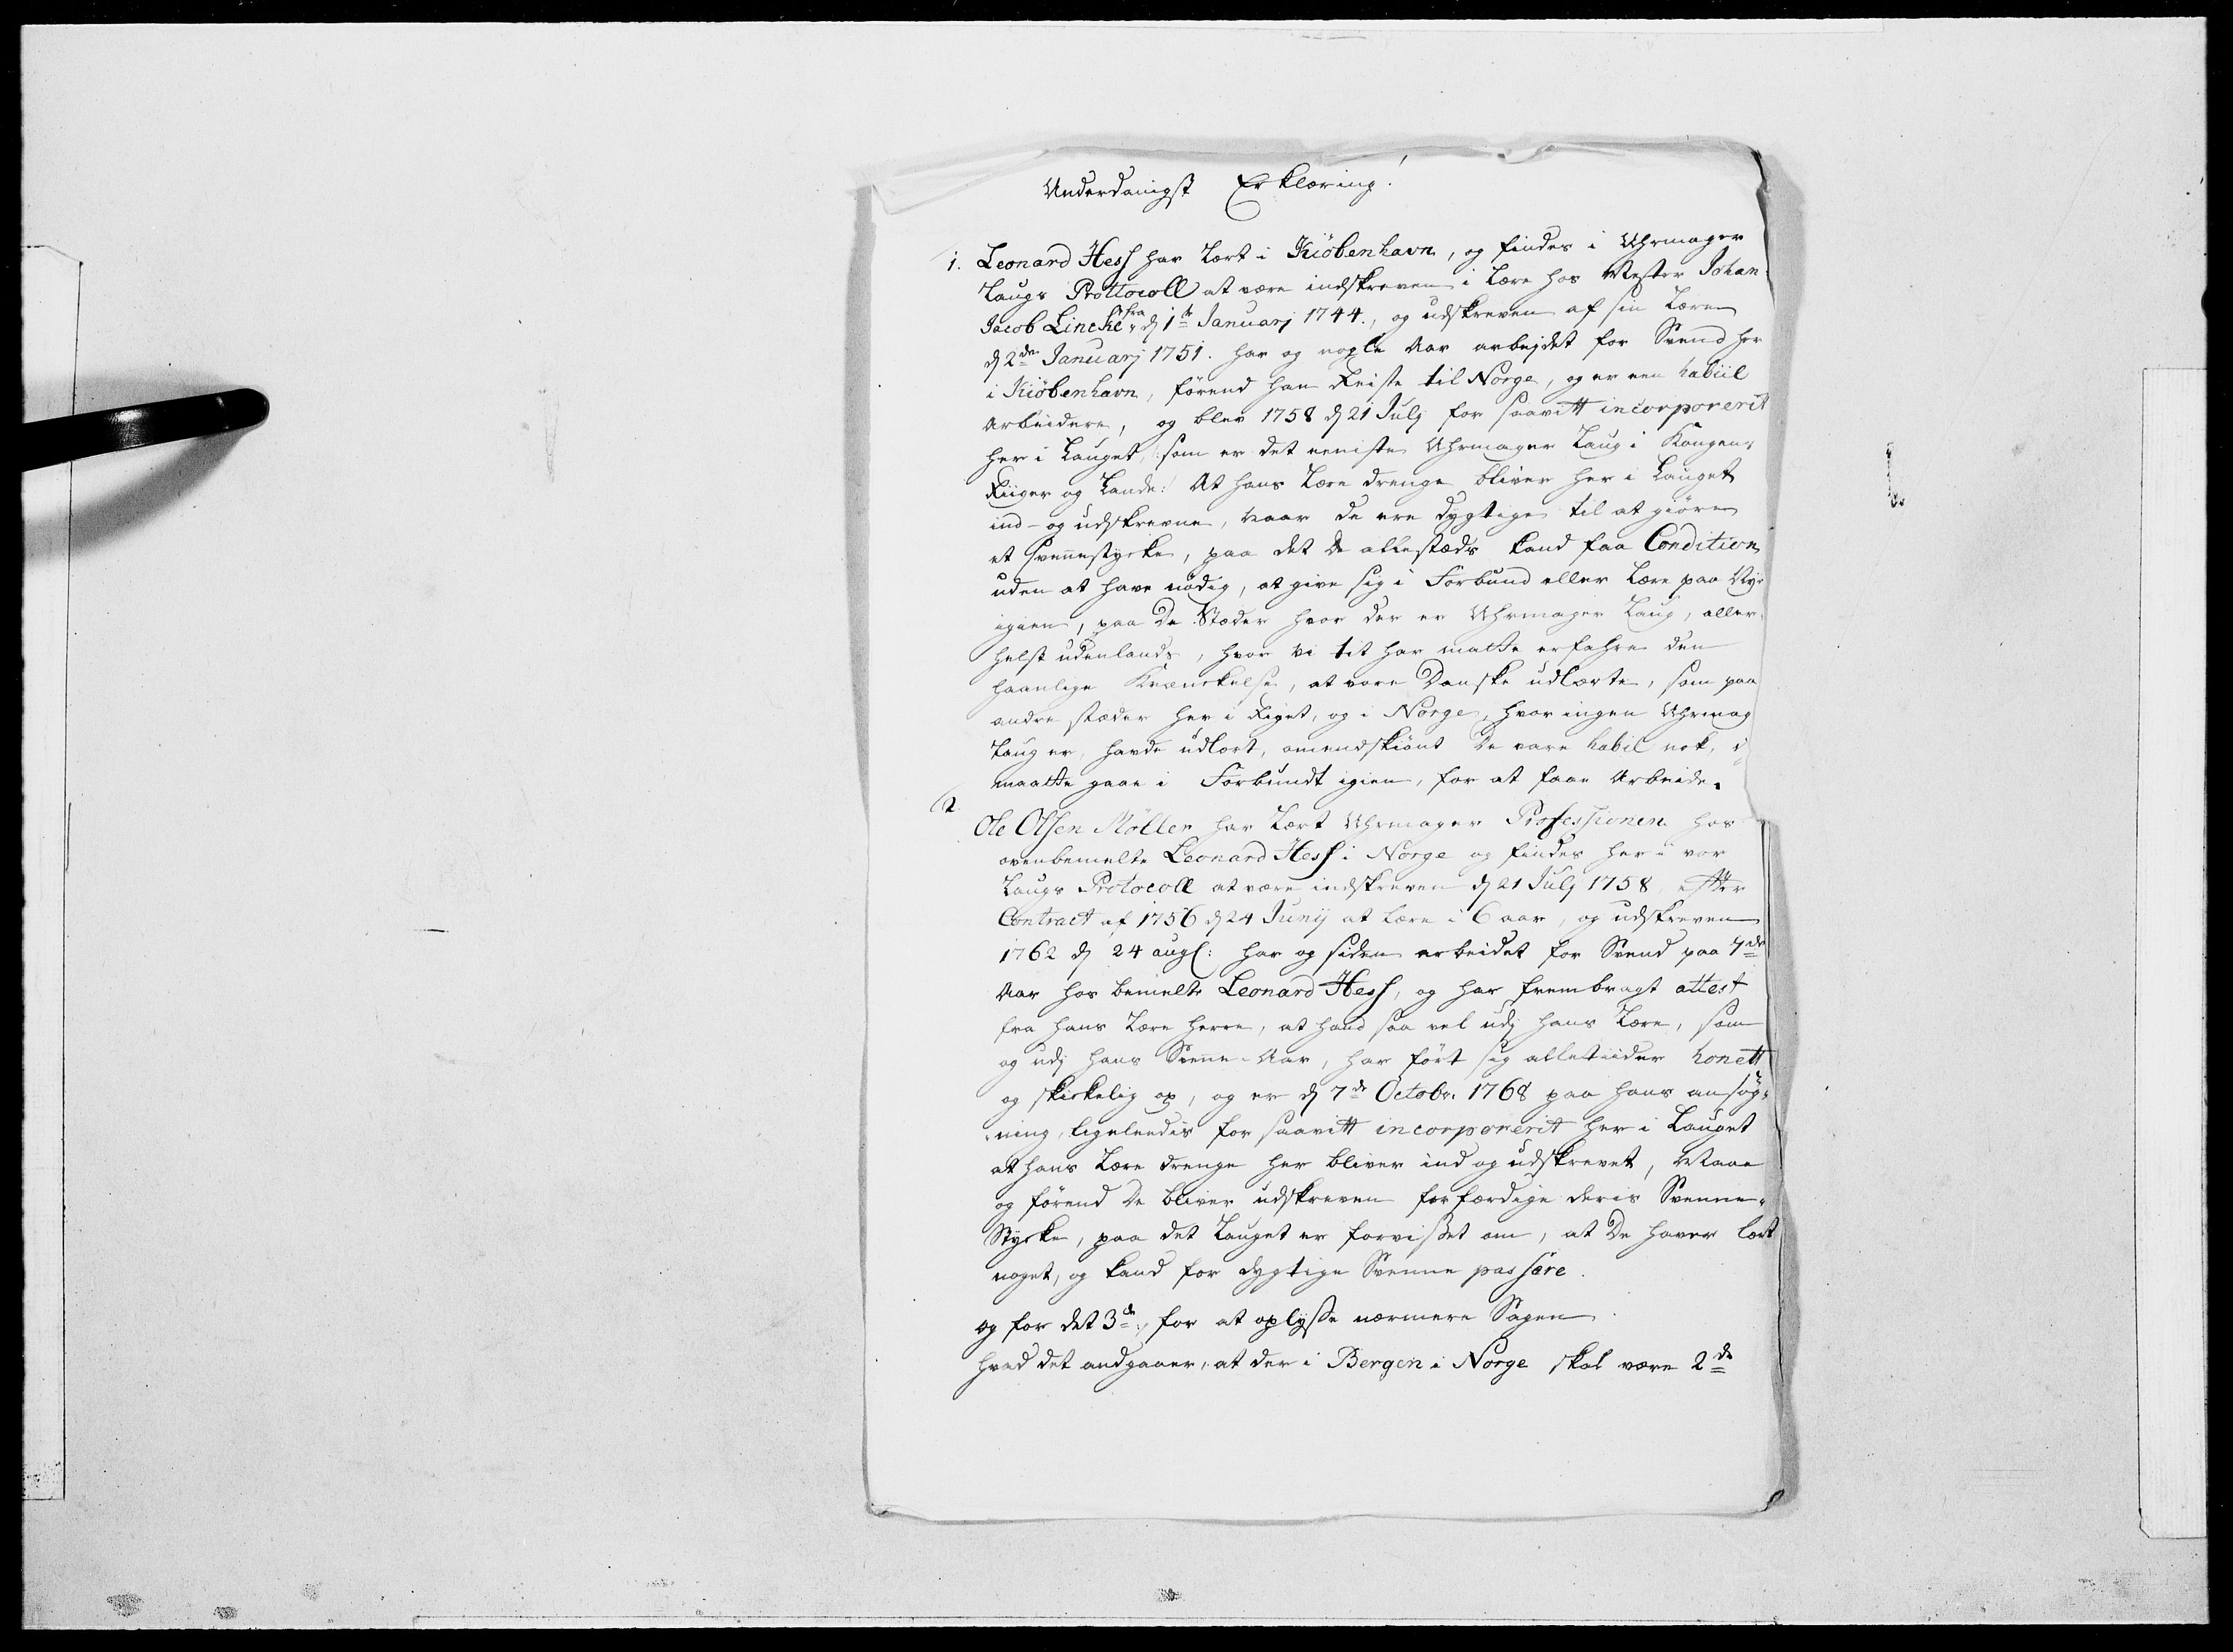 Underdanigst Erklæring!
1. Leonard Hess har Lært i Kiöbenhavn, og findes i Uhrmager
Laugs Prottocoll at være indskreven i Lære hos Mester Johan
Jacob Lincke fra d 1te Januarj 1744., og udskreven af sin Lære
d 2den Januarj 1751. har og nogle Aar arbejdet for Svend her
i Kiöbenhavn, förend han Reiste til Norge, og er een habiil
Arbeidere, og blev 1758 d 21 Julj for saavitt incorporerit
her i Lauget, som er det eeniste Uhrmager Laug i Kongens
Riiger og Lande: At hans Lære drenge bliver her i Lauget
ind- og udskrevne, naar de ere dygtige til at giöre
et Svennestycke, paa det De allestæds kand faa Condition,
uden at have nödig, at give sig i Forbund eller Lære paa Nye
igien, paa De Stæder hvor der er Uhrmager Laug, aller-
helst udenlands, hvor vi tit har matte erfahre den
haanlige Krænckelse, at vore Danske udlærte, som paa
andre stæder her i Riget, og i Norge, hvor ingen Uhrmag
Laug er, havde udlært, omendskiönt De vare habil nok,
maatte gaae i Forbundt igien, for at faae Arbeide.
2
Ole Olsen Möller har Lært Uhrmager Professionen hos
ovenbemelte Leonard Hess i Norge og findes her i vor
Laugs Protocoll at være indskreven d 21 Julj 1758, efter
Contract af 1756 d 24 Junij at Lære i 6 aar, og udskreven
1762 d 24 aug: har og siden arbeidet for Svend paa 7de
Aar hos bemelte Leonard Hess, og har frembragt attest
fra hans Lære Herre, at hand saa vel udj hans Lære, som
og udj hans Svenne-Aar, har fört sig alletiider honett
og skickelig op, og er d 7de Octobr. 1768 paa hans ansög-
ning, ligeleedis for saavitt incorporerit her i Lauget
at hans Lære drenge her bliver ind og udskrevet, Maae
og förend De bliver udskreven forfærdige deris Svenne-
Stycke, paa det Lauget er forvisset om, at De haver lært
noget, og kand for dygtige Svenne passere.
Og for det 3de, for at oplysse nærmere Sagen
hvad det andgaaer, at der i Bergen i Norge skal være 2de